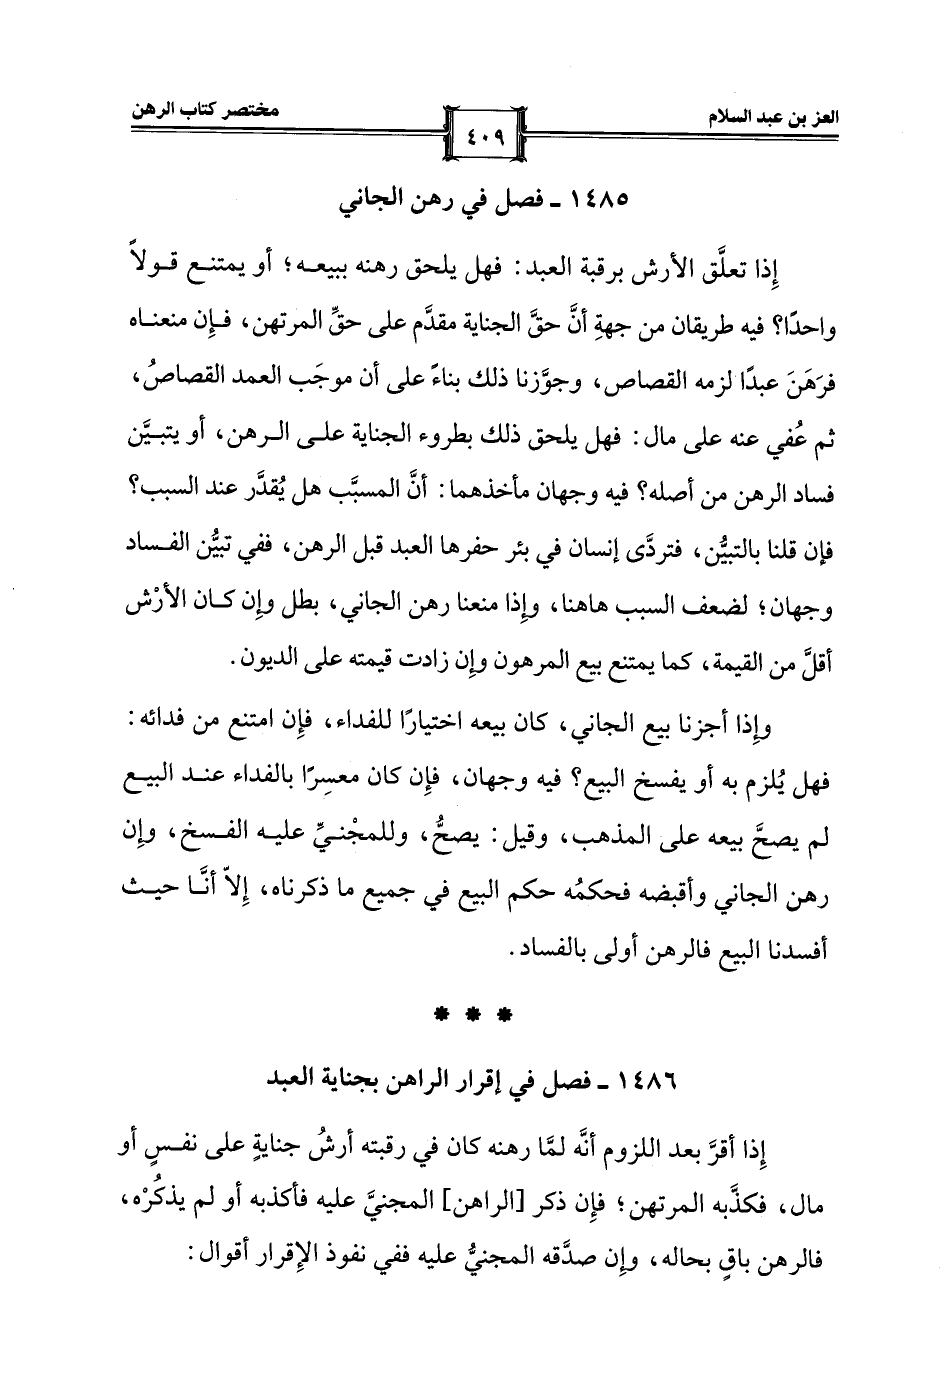 العز بن عبد السلام
٤٠٩
مختصر كتاب الرهن
١٤٨٥ ـ فصل في رهن الجاني
إذا تعلَّق الأرش برقبة العبد: فهل يلحق رهنه ببيعه؛ أو يمتنع قولاً
واحدًا؟ فيه طريقان من جهةِ أنَّ حقَّ الجناية مقدَّم على حقِّ المرتهن، فإن منعناه
فرَهَنَ عبدًا لزمه القصاص، وجوَّزنا ذلك بناءً على أن موجَب العمد القصاصُ،
ثم عُفي عنه على مال: فهل يلحق ذلك بطروء الجناية على الرهن، أو يتبيَّن
فساد الرهن من أصله؟ فيه وجهان مأخذهما: أنَّ المسبَّب هل يُقدَّر عند السبب؟
فإن قلنا بالتبيُّن، فتردَّى إنسان في بئر حفرها العبد قبل الرهن، ففي تبيُّن الفساد
وجهان؛ لضعف السبب هاهنا، وإذا منعنا رهن الجاني، بطل وإن كان الأرْش
أقلَّ من القيمة، كما يمتنع بيع المرهون وإن زادت قيمته على الديون.
وإذا أجزنا بيع الجاني، كان بيعه اختيارًا للفداء، فإن امتنع من فدائه:
فهل يُلزم به أو يفسخ البيع؟ فيه وجهان، فإن كان معسِرًا بالفداء عند البيع
لم يصحَّ بيعه على المذهب، وقيل: يصحُّ، وللمجْنيِّ عليه الفسخ، وإن
رهن الجاني وأقبضه فحكمُه حكم البيع في جميع ما ذكرناه، إلاّ أنَّا حيث
أفسدنا البيع فالرهن أولى بالفساد.
* * *
١٤٨٦ ـ فصل في إقرار الراهن بجناية العبد
إذا أقرَّ بعد اللزوم أنَّه لمَّا رهنه كان في رقبته أرشُ جنايةٍ على نفسٍ أو
مال، فكذَّبه المرتهن؛ فإن ذكر [الراهن] المجنيَّ عليه فأكذبه أو لم يذكُرْه،
فالرهن باقٍ بحاله، وإن صدَّقه المجنيُّ عليه ففي نفوذ الإقرار أقوال: